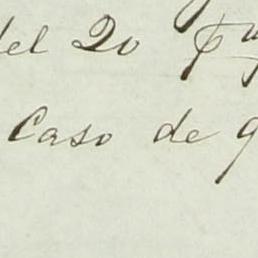 del 20
Caso de